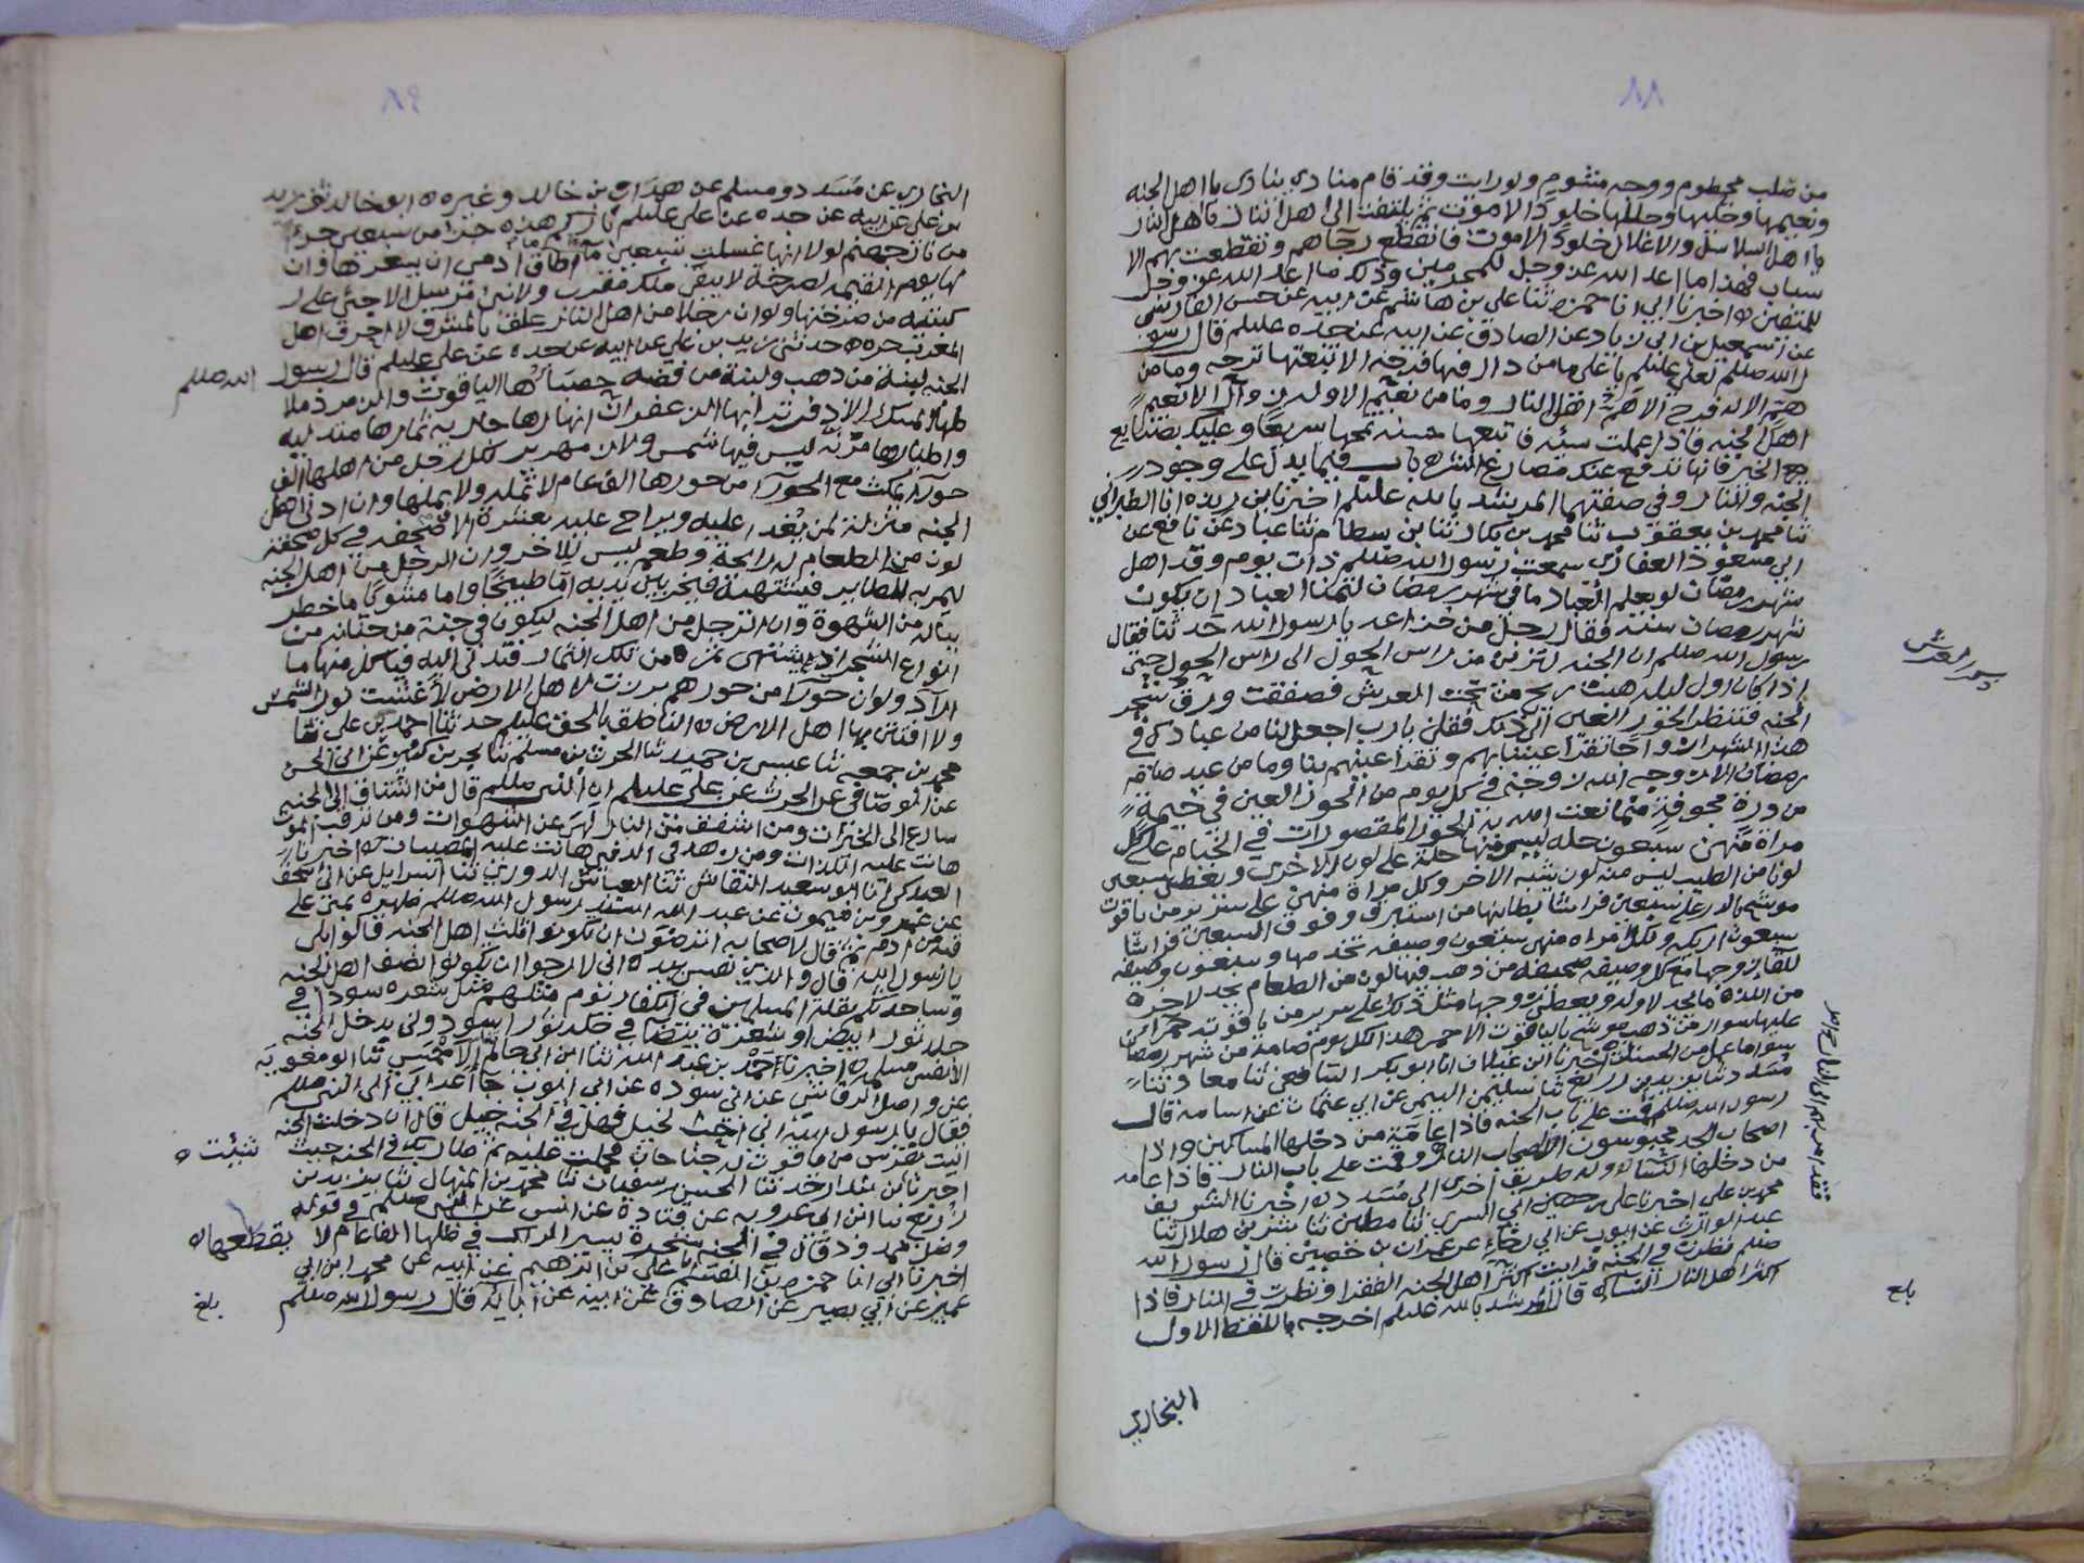 ٨٨
من قلب محطوم ووجه مشوم ولو رايت وقد قام منادي ينادى يا اهل الجنه
ونعيمها وحليها وحللها خلود الا موت ثم يلتفت الى اهل النار فيا اهل النار
يا اهل السلاسل والاغلال خلود الا موت فانقطع رجاهم وتقطعت بهم الا
سباب فهذا ما اعد الله عز وجل للمجرمين وذلك ما اعد الله عز وجل
للمتقين ه اخبرنا ابي انا حمزه ثنا علي بن هاشم عن ابيه عن حسن الفارسي
عن اسمعيل بن ابي زياد عن الصادق عن ابيه عن جده عليلم قال رسو
ل الله صللم لعلي عليلم يا على ما من دار فيها فرحه الا تبعتها ترحه وما من
هم الا له فرح الا هم اهل النار وما من نعيم الا وله زوال الا نعيم
اهل الجنه فاذا عملت سيئه فاتبعها حسنه تمحها سريعا وعليك بصنايع
الخير فانها تدفع عنك مصارع الشر باب فيما يدل على وجود
الجنه والنار وفي صفتهما المرشد بالله عليلم اخبرنا بن ريذه انا الطبراني
ثنا محمد بن يعقوب ثنا محمد بن بكار ثنا بن سطام ثنا عباد عن نافع عن
ابي مسعود الغفاري سمعت رسول الله صللم ذات يوم وقد اهل
شهر رمضان لو يعلم العباد ما في شهر رمضان لتمنا العباد ان يكون
شهر رمضان سنه فقال رجل من خزاعه يا رسول الله حدثنا فقال
رسول الله صللم ان الجنه لتزين من راس الحول الى راس الحول حتى
اذا كان اول ليله هبت ريح من تحت العرش فصفقت ورق شجر
الجنه فتنظر الحور العين الى ذلك فقلن يا رب اجعل لنا من عبادك في
هذا الشهر ازواجا تقر اعيننا بهم وتقر اعينهم بنا وما من عبد صام
رمضان الا زوجه الله زوجه في كل يوم من الحور العين في خيمة
من درة مجوفة مما نعت الله به الحور المقصورات في الخيام على كل
مراة منهن سبعون حله ليس فيها حله على لون الاخرى وتعطى سبعين
لونا من الطيب ليس منه لون يشبه الاخر وكل مراة منهن على سرير من ياقوت
موشح بالدر على سبعين فراشا بطانها من استبرق وفوق السبعين فراشا
سبعون اريكه ولكل امراه منهن سبعون وصيفه تخدمها وسبعون وصيفه
للقا زوجها مع كل وصيفه صحيفه من ذهب فيها لون من الطعام يجد لاخره
من اللذه ما لا يجد لاوله ويعطى زوجها مثل ذلك على سرير من ياقوته حمرا
عليها سوار من ذهب موشح بالياقوت الاحمر هذا لكل يوم صامه من شهر رمضان
سوا ما عمل من الحسنات ه اخبرنا ابن غيلان انا ابو بكر الشافعي ثنا معاذ ثنا
مسدد ثنا يزيد بن زريع ثنا سليمن التيمي عن ابي عثمان عن اسامه قال
رسول الله صللم قمت على باب الجنه فاذا عامة من دخلها المساكين واذا
اصحاب الجد محبوسون الا اصحاب النار وقمت على باب النار فاذا عامه
من دخلها النسا ه وله طريق اخرى الى مسدد ه اخبرنا الشريف
محمد بن علي اخبرنا علي بن حسين ابي السري انا مطين ثنا بشر بن هلال ثنا
عبد الوارث عن ايوب عن ابي رجاء عن عمران بن حصين قال رسول الله
صللم نظرت في الجنه فرايت اكثر اهل الجنه الفقرا ونظرت في النار فاذا
اكثر اهل النار النساء قال المرشد بالله عليلم اخرجه باللفظ الاول
البخاري
بلغ
٨٩
البخاري عن مسدد ومسلم عن هداب بن خالد وغيره ه ابو خالد ثنى زيد
بن علي عن ابيه عن جده عن علي عليلم نار هذه جزا من سبعين جزءا
من نار جهنم لولا انها غسلت بسبعين ما اطاق ادمى ان يسعرها وان
لها يوم القيمه لصرخة لا يبقى ملك مقرب ولا نبي مرسل الا جثى على ر
كبتيه من صرختها ولو ان رجلا من اهل النار علق بالمشرق لاحرق اهل
المغرب حره ه حدثني زيد بن علي عن ابيه عن جده عن علي عليلم قال رسول الله صللم
الجنه لبنة من ذهب ولبنة من فضه حصباها الياقوت والزمرد ملا
طها المسك الاذفر ترابها الزعفران انهارها جاريه ثمارها متدليه
واطيارها مرنه ليس فيها شمس ولا زمهرير لكل رجل من اهلها الف
حورا يمكث مع الحورا من حورها الف عام لا تمله ولا يملها وان ادنى اهل
الجنه منزلة لمن يغدا عليه ويراح عليه بعشرة الاف صحفه في كل صحفة
لون من الطعام له رايحة وطعم ليس للاخر وان الرجل من اهل الجنه
ليمر به الطاير فيشتهيه فيخر بين يديه اما طبيخا واما مشويا ما خطر
بباله من الشهوة وان الرجل من اهل الجنه ليكون في جنة من جنانه من
انواع الشجر اذ يشتهى ثمره من تلك الثمار فتدلى اليه فياكل منها ما
اراد ولو ان حورا من حورهم برزت لاهل الارض لاغشيت نور الشمس
ولا افتتن بها اهل الارض ه الناطق بالحق عليلم حدثنا احمد بن علي ثنا
محمد بن جمعه ثنا عيسى بن حميد ثنا الحرث بن مسلم ثنا بحر بن كنيز عن ابي الحسن
عن الوصافي عن الحرث عن علي عليلم ان النبي صللم قال من اشتاق الى الجنه
سارع الى الخيرات ومن اشفق من النار لهى عن الشهوات ومن ترقب الموت
هانت عليه اللذات ومن زهد في الدنيا هانت عليه المصيبات ه اخبرنا
العسكري انا ابو سعيد النقاش ثنا العباس الدوري ثنا اسرايل عن ابي اسحق
عن عمرو بن ميمون عن عبد الله اسند رسول الله صللم ظهره بمنى على
قبة من ادم ثم قال لاصحابه اترضون ان تكونوا ثلث اهل الجنه قالوا بلى
يا رسول الله قال والذي نفسي بيده اني لارجوا ان تكونوا نصف اهل الجنه
وساحدثكم بقلة المسلمين في الكفار يوم مثلهم مثل شعره سودا في
جلد ثور ابيض او شعرة بيضا في جلد ثور اسود ولن يدخل الجنه
الا نفس مسلمه ه اخبرنا احمد بن عبد الله ثنا ابن ابي حاتم الاحمسي ثنا ابو معويه
عن واصل الرقاشي عن ابي سوره عن ابي ايوب جا اعرابي الى النبي صللم
فقال يا رسول الله اني احب الخيل فهل في الجنه خيل قال ان دخلت الجنه
اتيت بفرس من ياقوت له جناحان فحملت عليه ثم طار بك في الجنه حيث شئت ه
اخبرنا بن بندار حدثنا الحسن بن سفيان ثنا محمد بن المنهال ثنا يزيد بن
زريع ثنا ابن ابي عروبه عن قتادة عن انس عن النبي صللم في قوله
وظل ممدود قال في الجنه شجره يسير الراكب في ظلها الف عام لا يقطعها ه
اخبرنا ابي انا حمزه بن القسم انا علي بن ابرهيم عن ابيه عن محمد بن ابي
عمير عن ابي بصير عن الصادق عن ابيه عن ابايه قال رسول الله صللم
بلغ